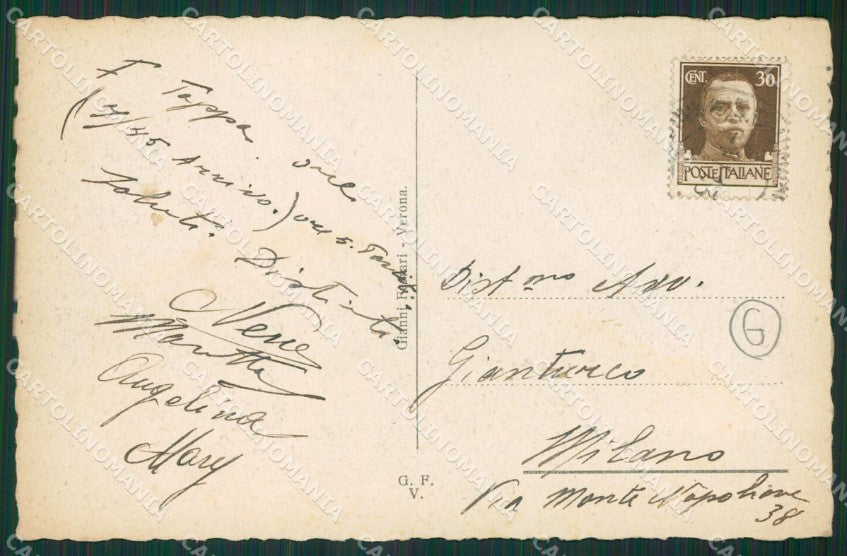 I Tappa. ore
(4/45 Arrivo.) ore 5. Tanti
Saluti. Distinti.
Nene
Angelina
Mary
Gianni Fornari - Verona.
G. F.
V.
CENT. 30
POSTE ITALIANE
Dist.mo Avv.
G
Gianturco
Milano
Via Monte Napoleone
38
CARTOLINOMANIA